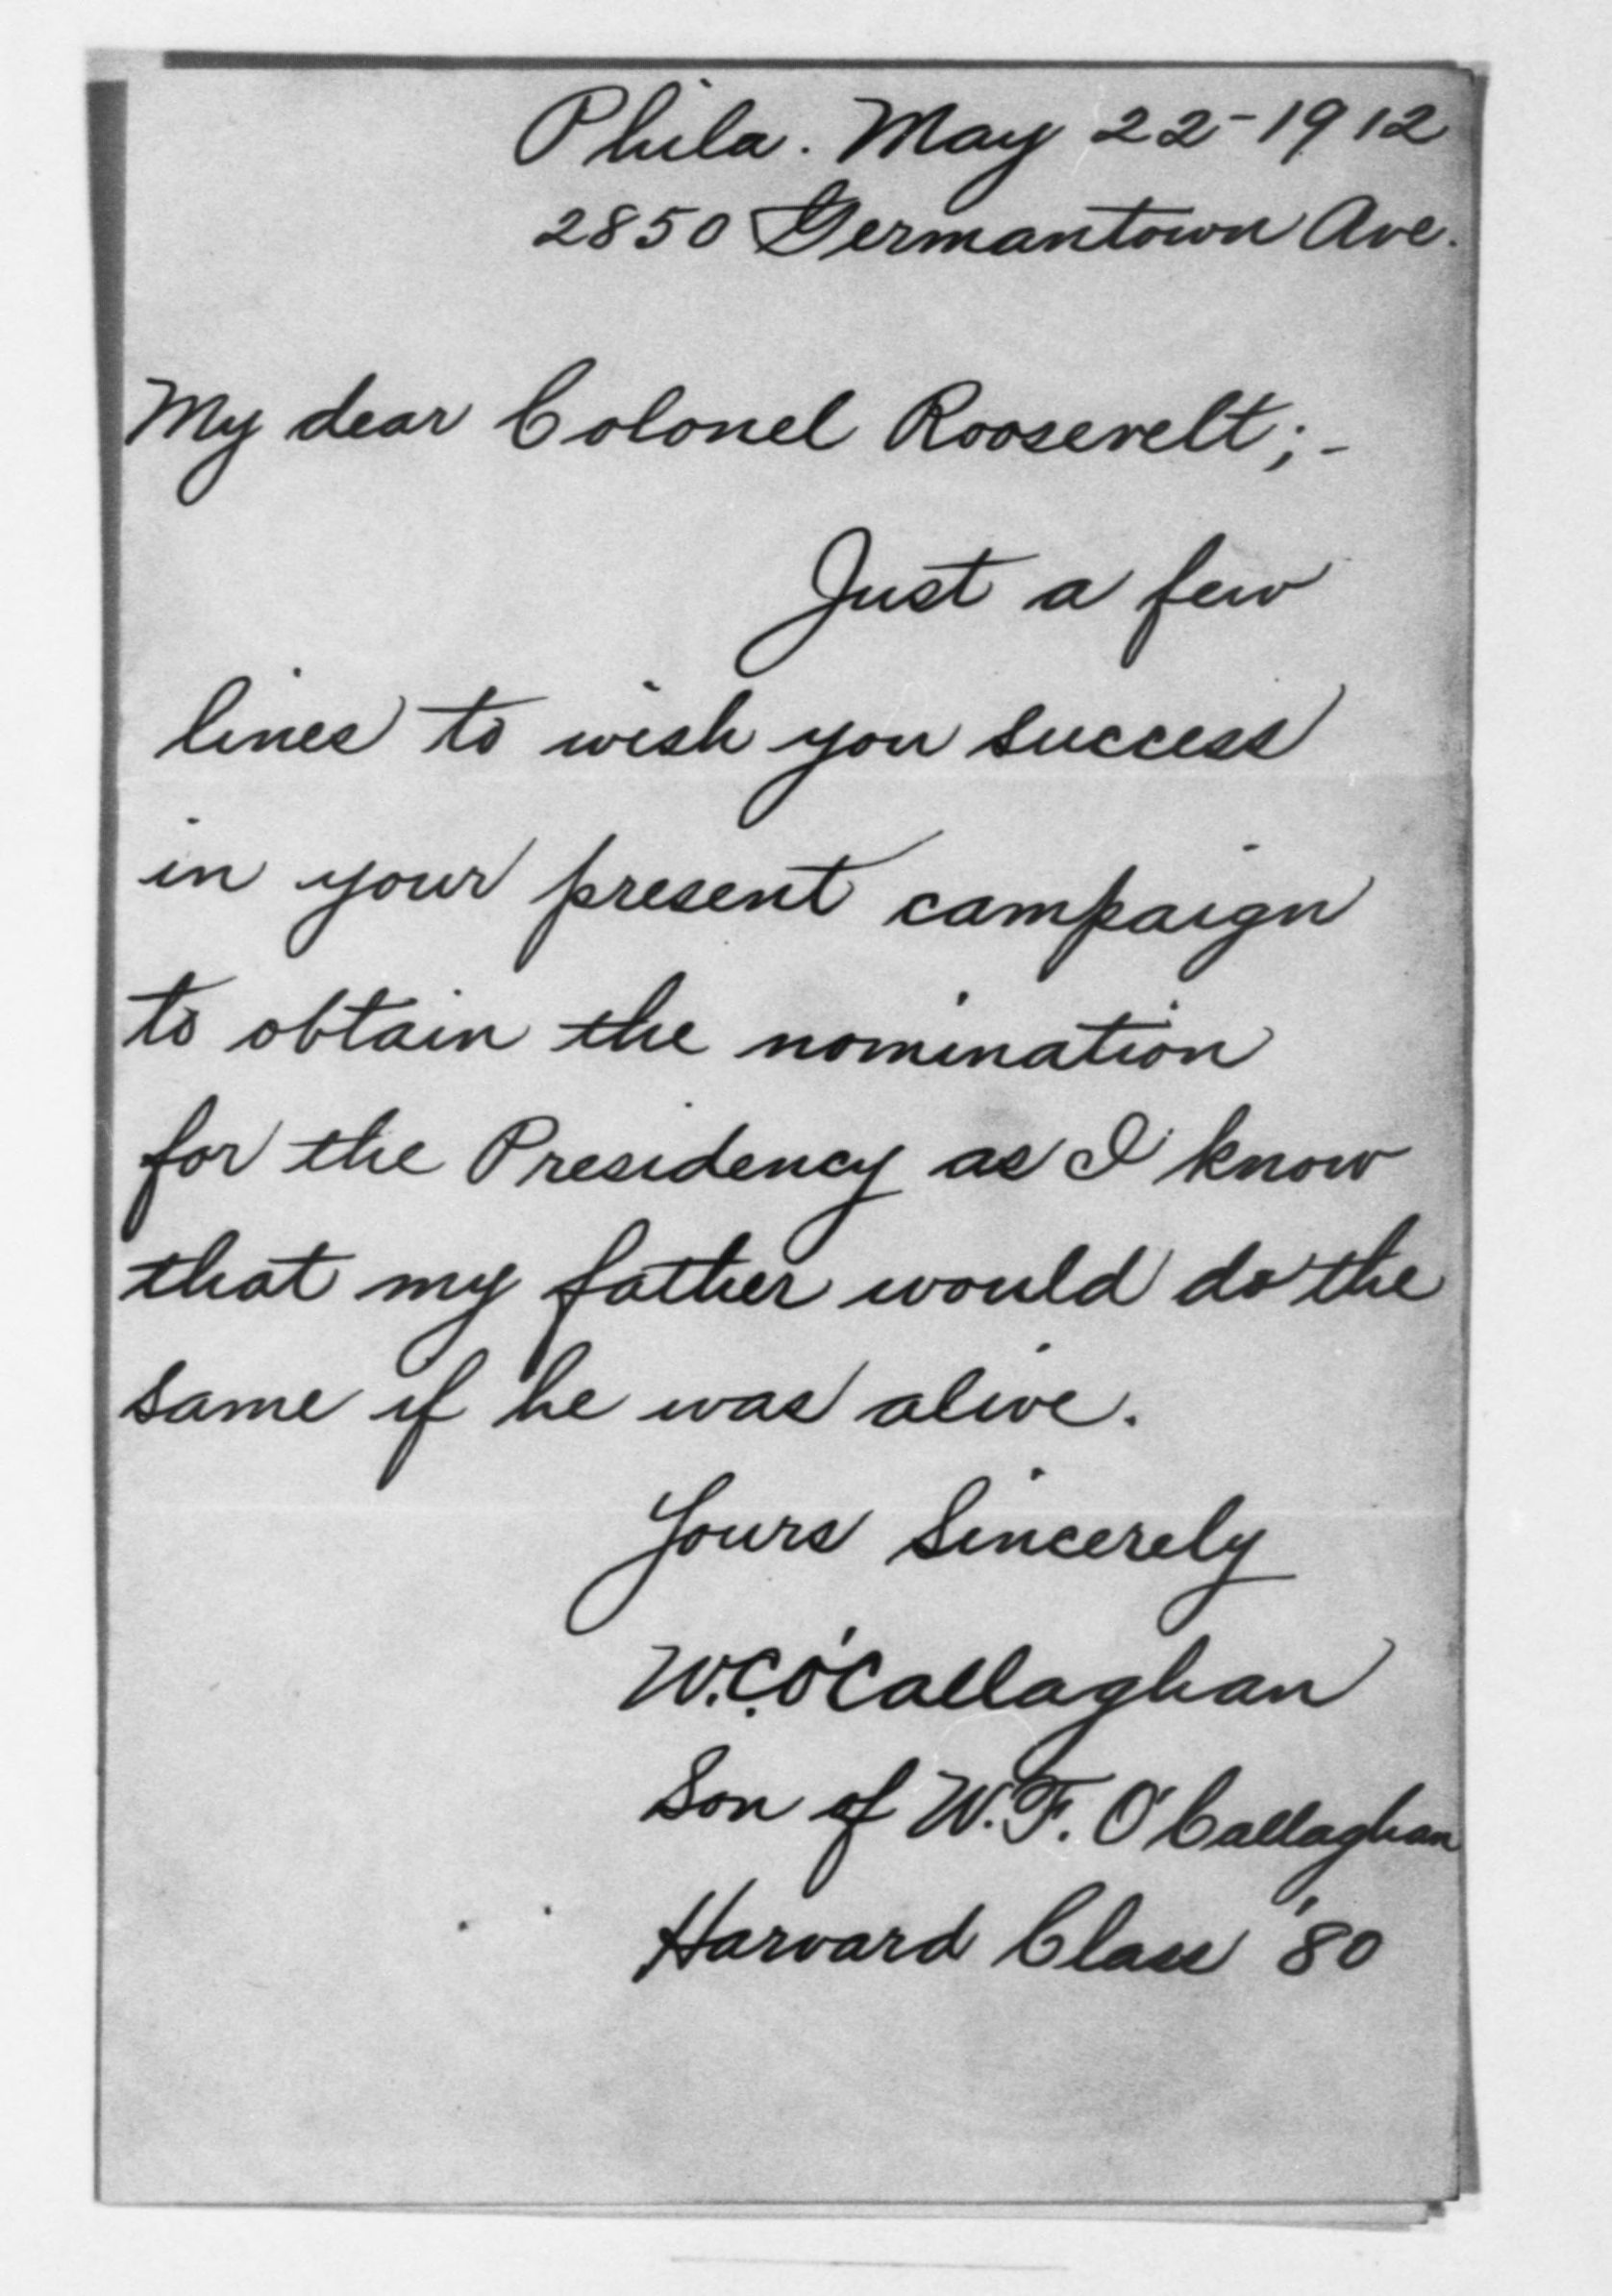 Phila. May 22-1912
2850 Germantown Ave.
My dear Colonel Roosevelt;-
Just a few
lines to wish you success
in your present campaign
to obtain the nomination
for the Presidency as I know
that my father would do the
same if he was alive.
Yours Sincerely
W.C. O'Callaghan
Son of W.F. O'Callaghan
Harvard Class '80